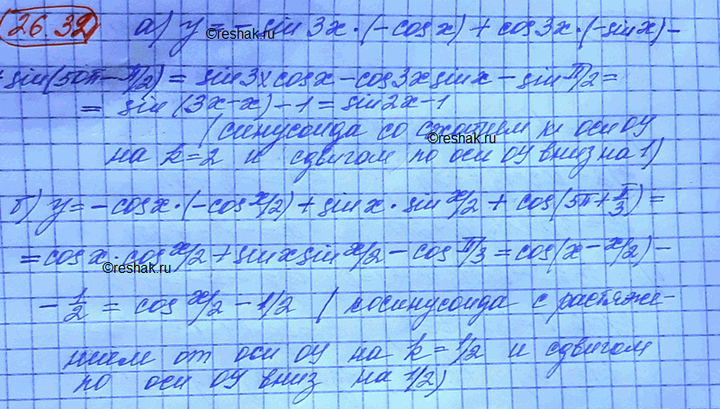 26.32 а) y = -sin 3x·(-cos x) + cos 3x·(-sin x) -
+ sin(50π - π/2) = sin 3x cos x - cos 3x sin x - sin π/2 =
= sin (3x - x) - 1 = sin 2x - 1
(синусоида со сжатием к оси OY
на k = 2 и сдвигом по оси OY вниз на 1)
б) y = -cos x·(-cos x/2) + sin x · sin x/2 + cos(5π + π/3) =
= cos x · cos x/2 + sin x sin x/2 - cos π/3 = cos(x - x/2) -
- 1/2 = cos x/2 - 1/2 (косинусоида с растяже-
нием от оси OY на k = 1/2 и сдвигом
по оси OY вниз на 1/2)
©reshak.ru
©reshak.ru
©reshak.ru